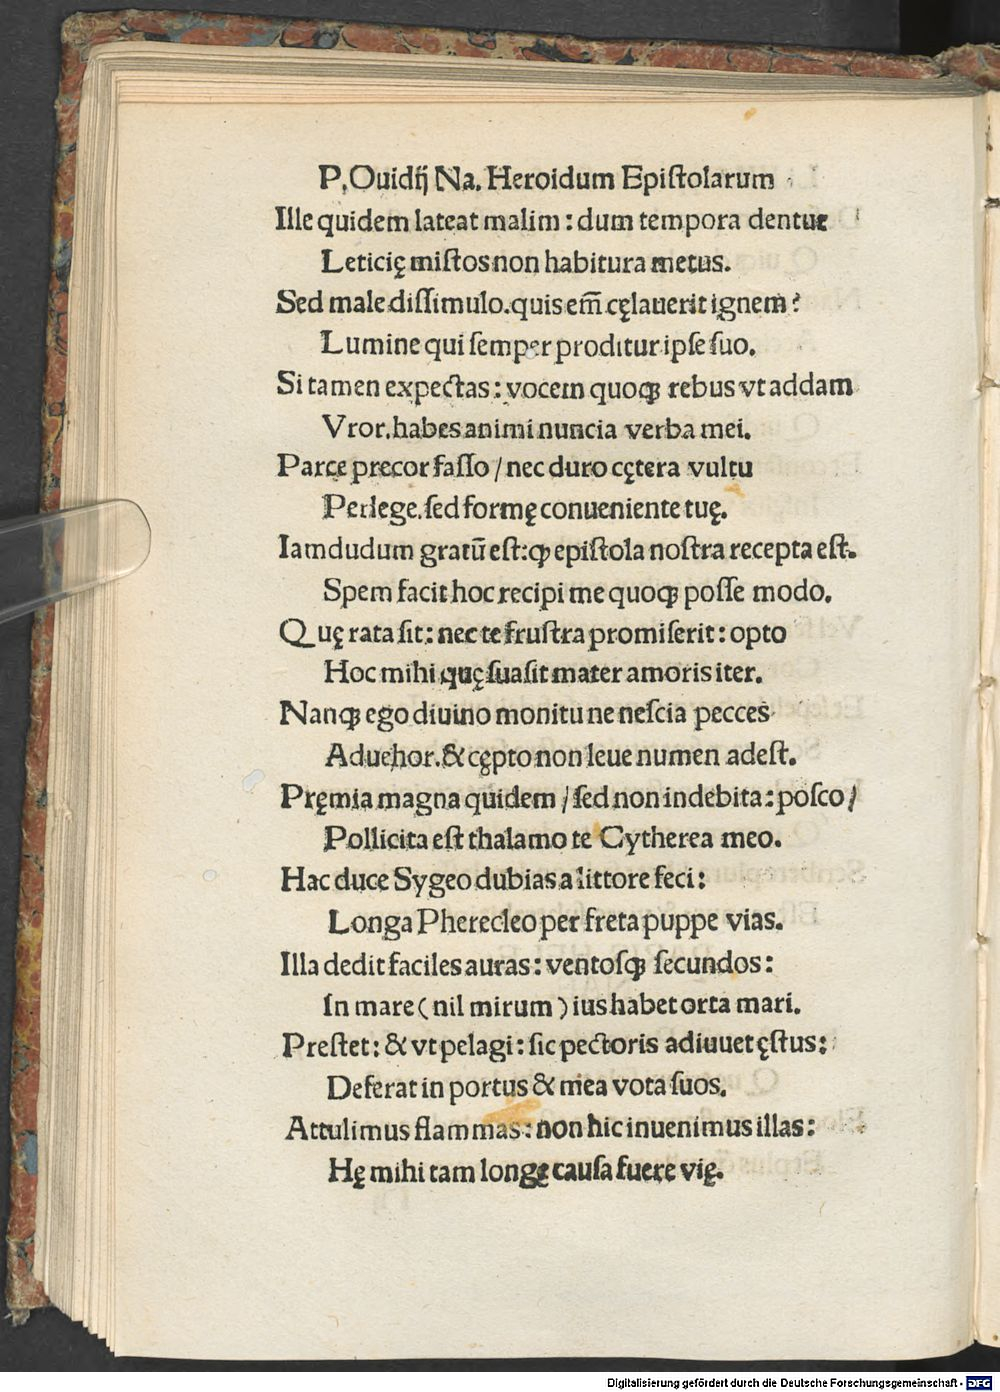 P. Ouidij Na. Heroidum Epiſtolarum
Ille quidem lateat malim: dum tempora dentur
Leticię miſtos non habitura metus.
Sed male diſſimulo. quis em̄ cęlauerit ignem?
Lumine qui ſemper proditur ipſe ſuo.
Si tamen expectas: vocem quoqꝫ rebus vt addam
Vror. habes animi nuncia verba mei.
Parce precor faſſo / nec duro cętera vultu
Perlege. ſed formę conueniente tuę.
Iamdudum gratū eſt: ꝙ epiſtola noſtra recepta eſt.
Spem facit hoc recipi me quoqꝫ poſſe modo.
Quę rata ſit: nec te fruſtra promiſerit: opto
Hoc mihi quę ſuaſit mater amoris iter.
Nanqꝫ ego diuino monitu ne neſcia pecces
Aduehor. & cępto non leue numen adeſt.
Pręmia magna quidem / ſed non indebita: poſco /
Pollicita eſt thalamo te Cytherea meo.
Hac duce Sygeo dubias a littore feci:
Longa Pherecleo per freta puppe vias.
Illa dedit faciles auras: ventoſqꝫ ſecundos:
In mare ( nil mirum ) ius habet orta mari.
Preſtet: & vt pelagi: ſic pectoris adiuuet ęſtus:
Deferat in portus & mea vota ſuos.
Attulimus flammas: non hic inuenimus illas:
Hę mihi tam longę cauſa fuere vię.
Digitalisierung gefördert durch die Deutsche Forschungsgemeinschaft - DFG